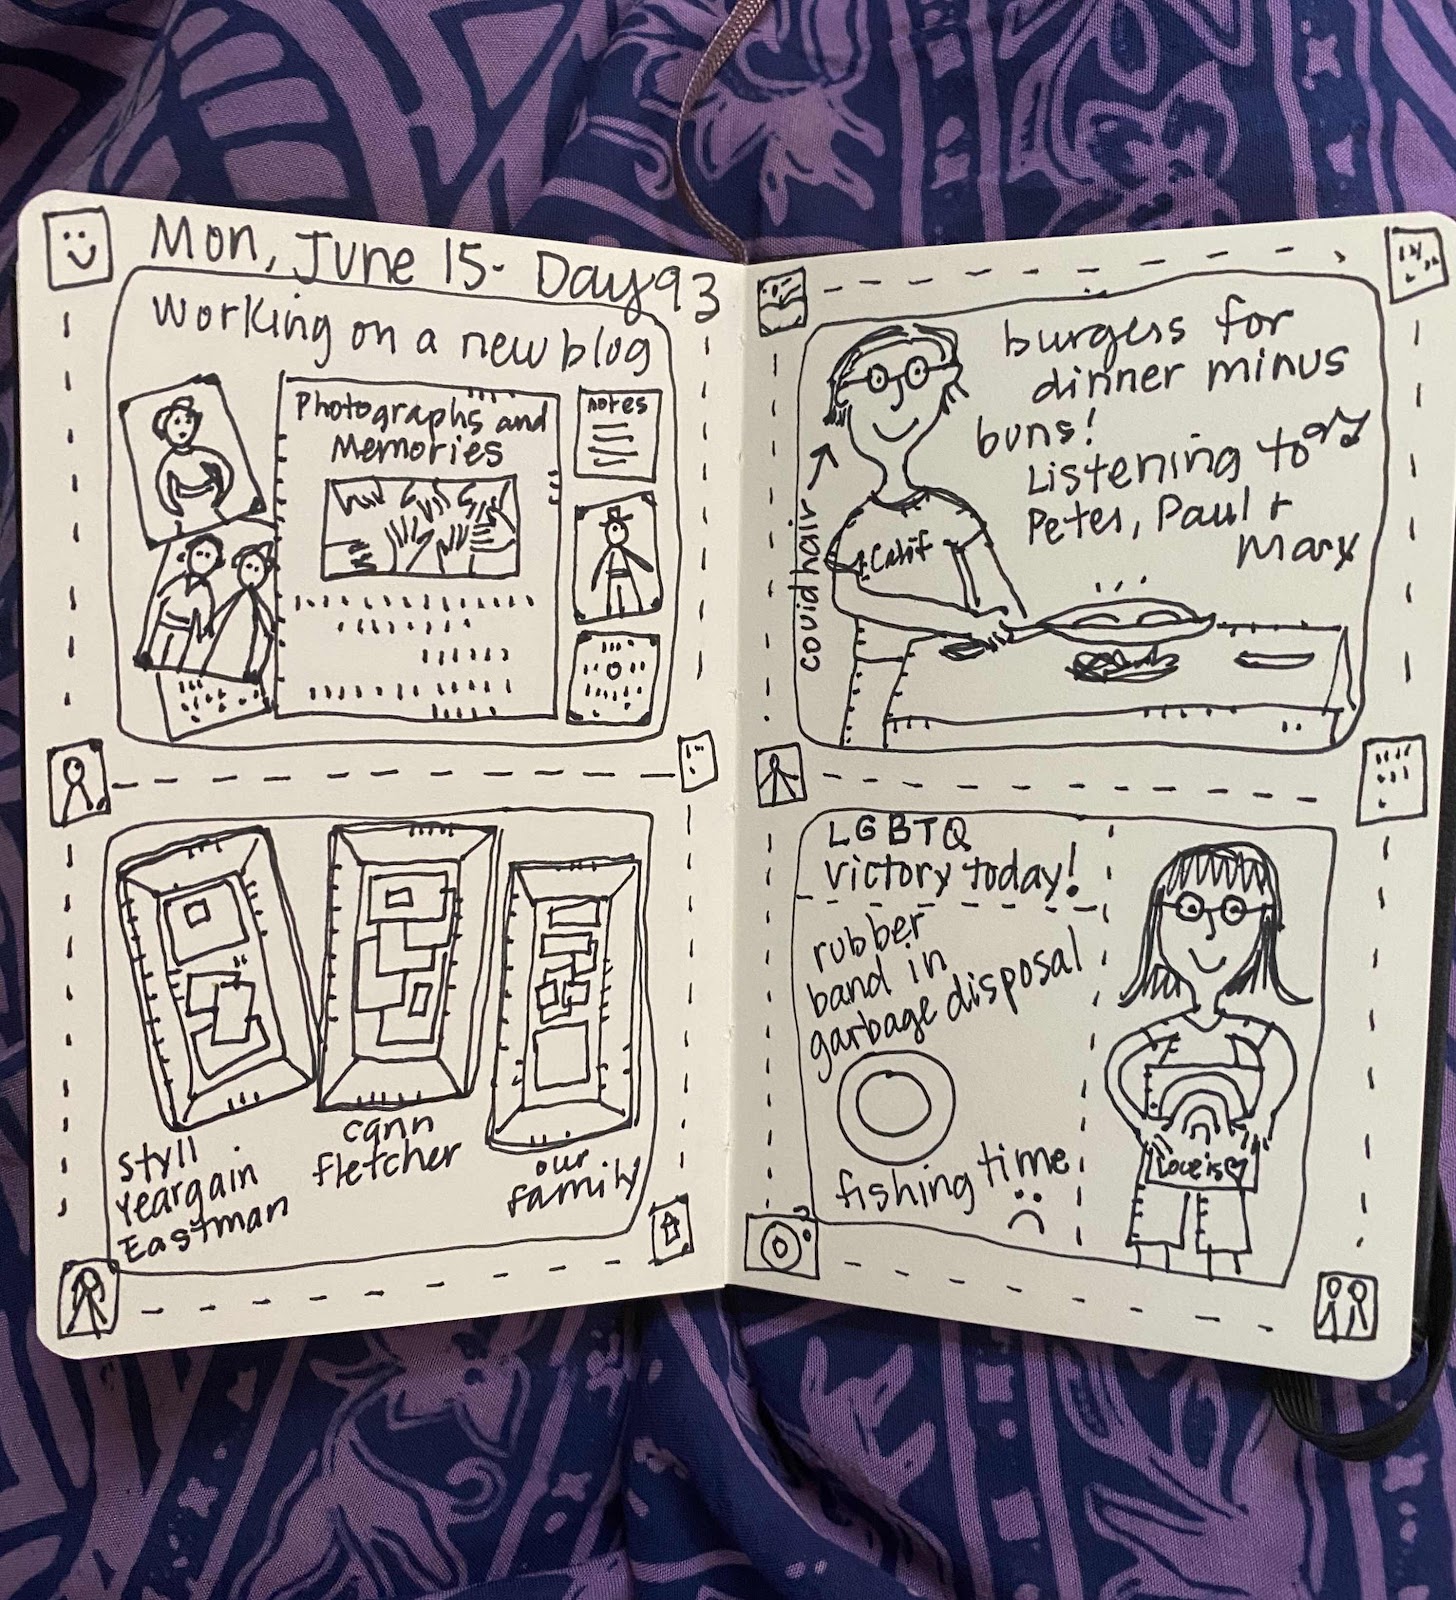 Mon, June 15- Day 93
Working on a new blog
Photographs and
Memories
notes
Styll
Yeargain
Eastman
Cann
Fletcher
our
family
burgers for
dinner minus
buns!
Listening to
Peter, Paul +
Mary
covid hair
Calif
LGBTQ
Victory today!
rubber
band in
garbage disposal
fishing time
Love is